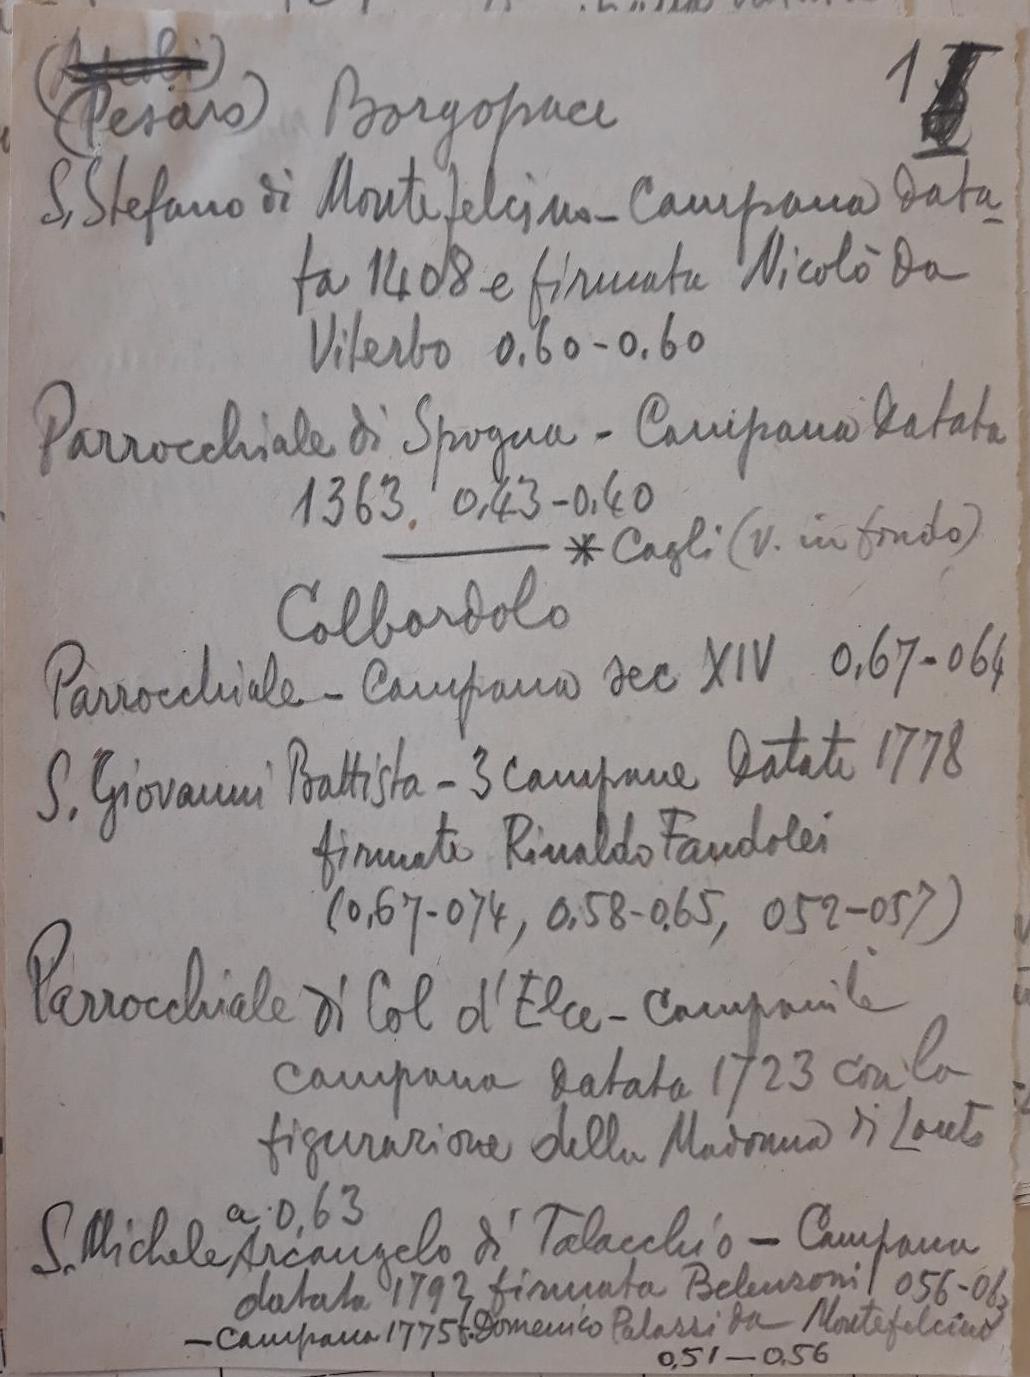 (Pesaro) Borgopace 1
S. Stefano di Montefelcino - Campana data-
ta 1408 e firmata Nicolò da
Viterbo 0,60-0,60
Parrocchiale di Spogna - Campana datata
1363. 0,43-0,40
* Cagli (v. in fondo)
Colbordolo
Parrocchiale - Campana sec XIV 0,67-064
S. Giovanni Battista - 3 campane datate 1778
firmate Rinaldo Fandolei
(0,67-074, 0,58-0,65, 052-057)
Parrocchiale di Col d'Elce - campanile
campana datata 1723 con la
figurazione della Madonna di Loreto
a. 0,63
S. Michele Arcangelo di Talacchio - Campana
datata 1792 firmata Belenzoni 056-063
- campana 1775 f. Domenico Palazzi da Montefelcino
0,51-0,56